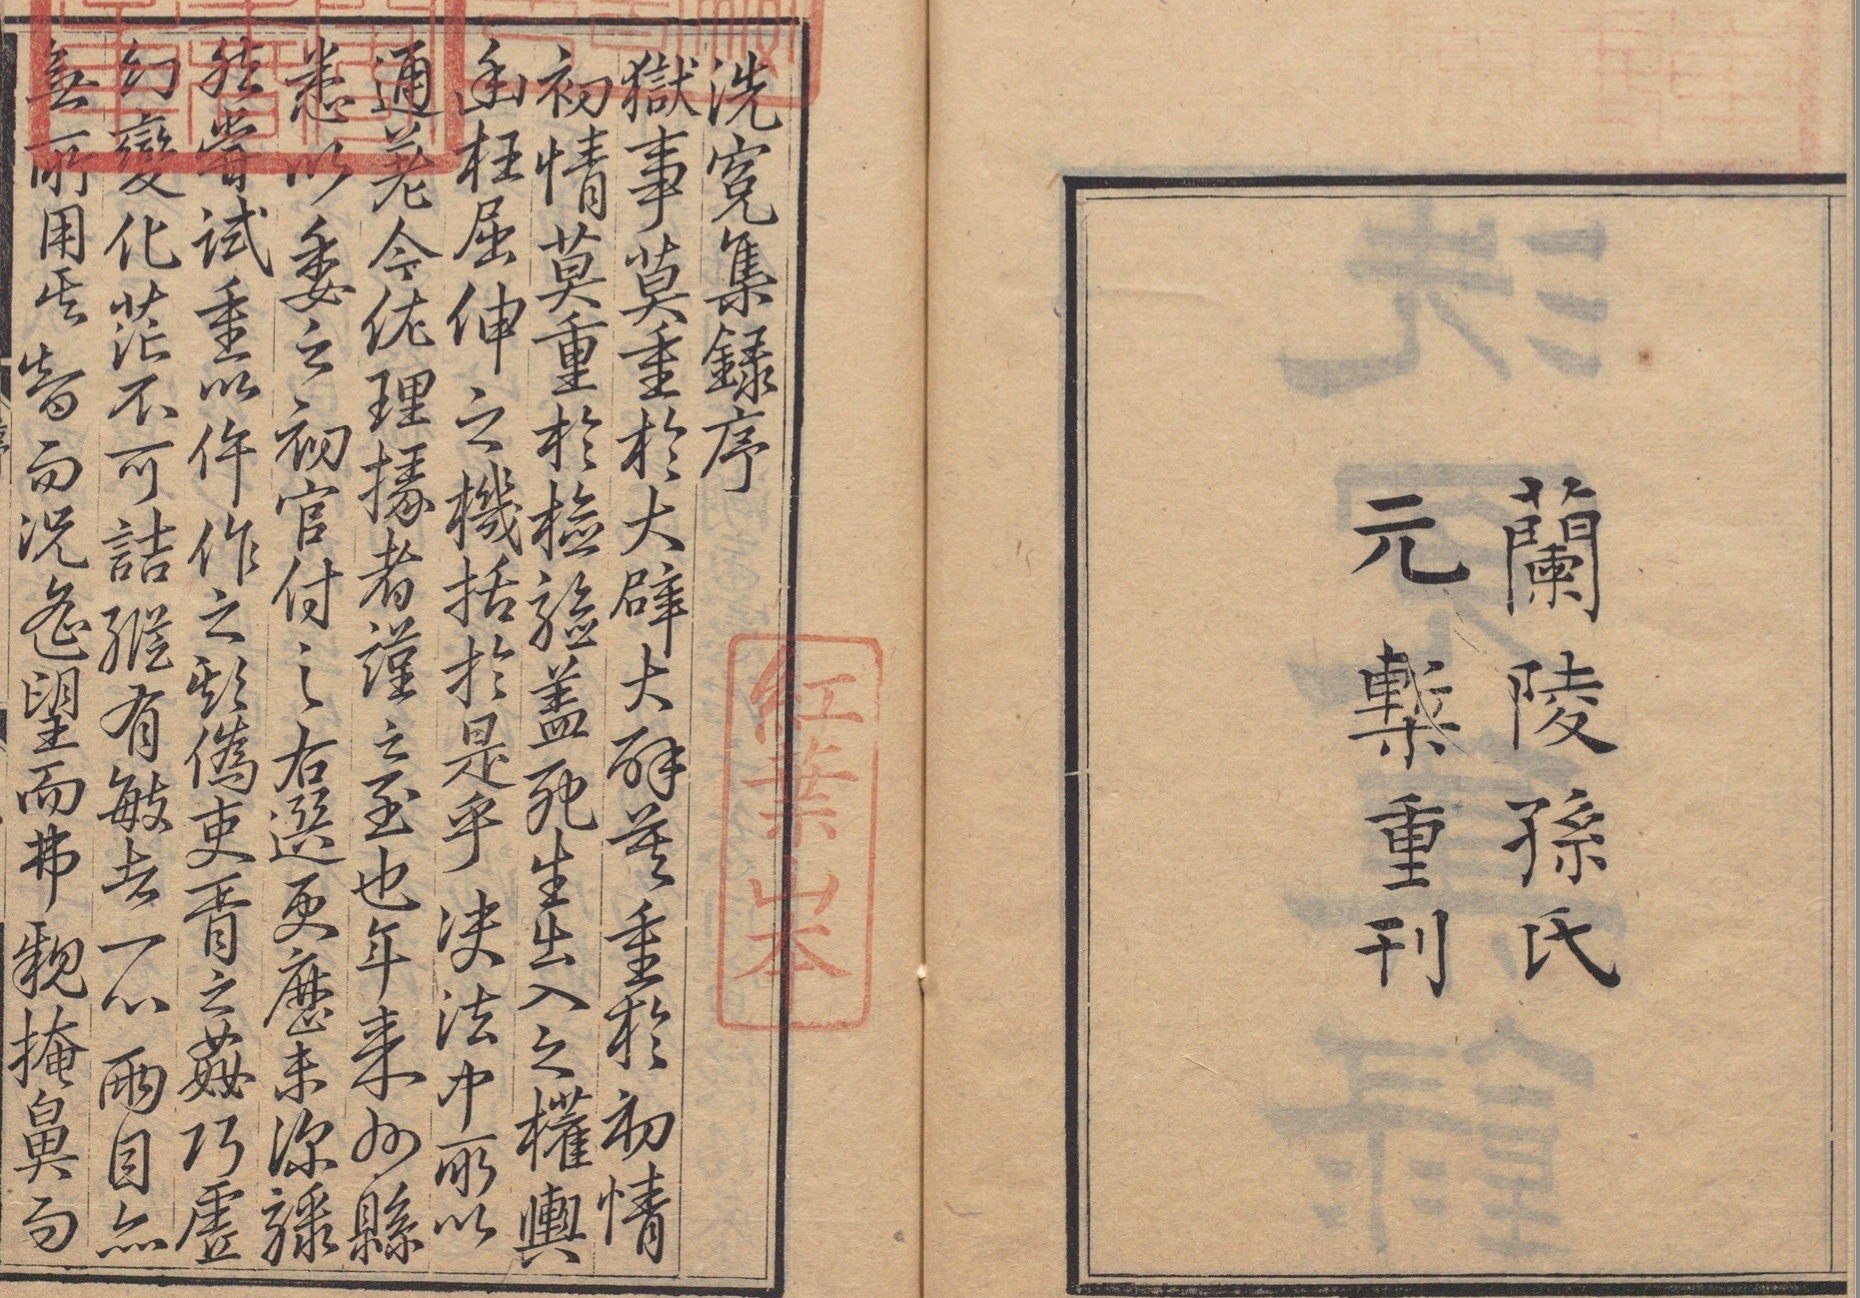 蘭陵孫氏
元槧重刊
洗寃集録序
獄事莫重於大辟大辟莫重於初情
初情莫重於檢驗盖死生出入之權輿
幽枉屈伸之機括於是乎決法中所以
通差今佐理掾者謹之至也年來州縣
悉以委之初官付之右選更歷未深驟
然嘗試重以仵作之欺僞吏胥之姦巧虚
幻變化茫不可詰縱有敏者一心兩目亦
無所用其智而況遙望而弗親掩鼻而
紅葉山本
序